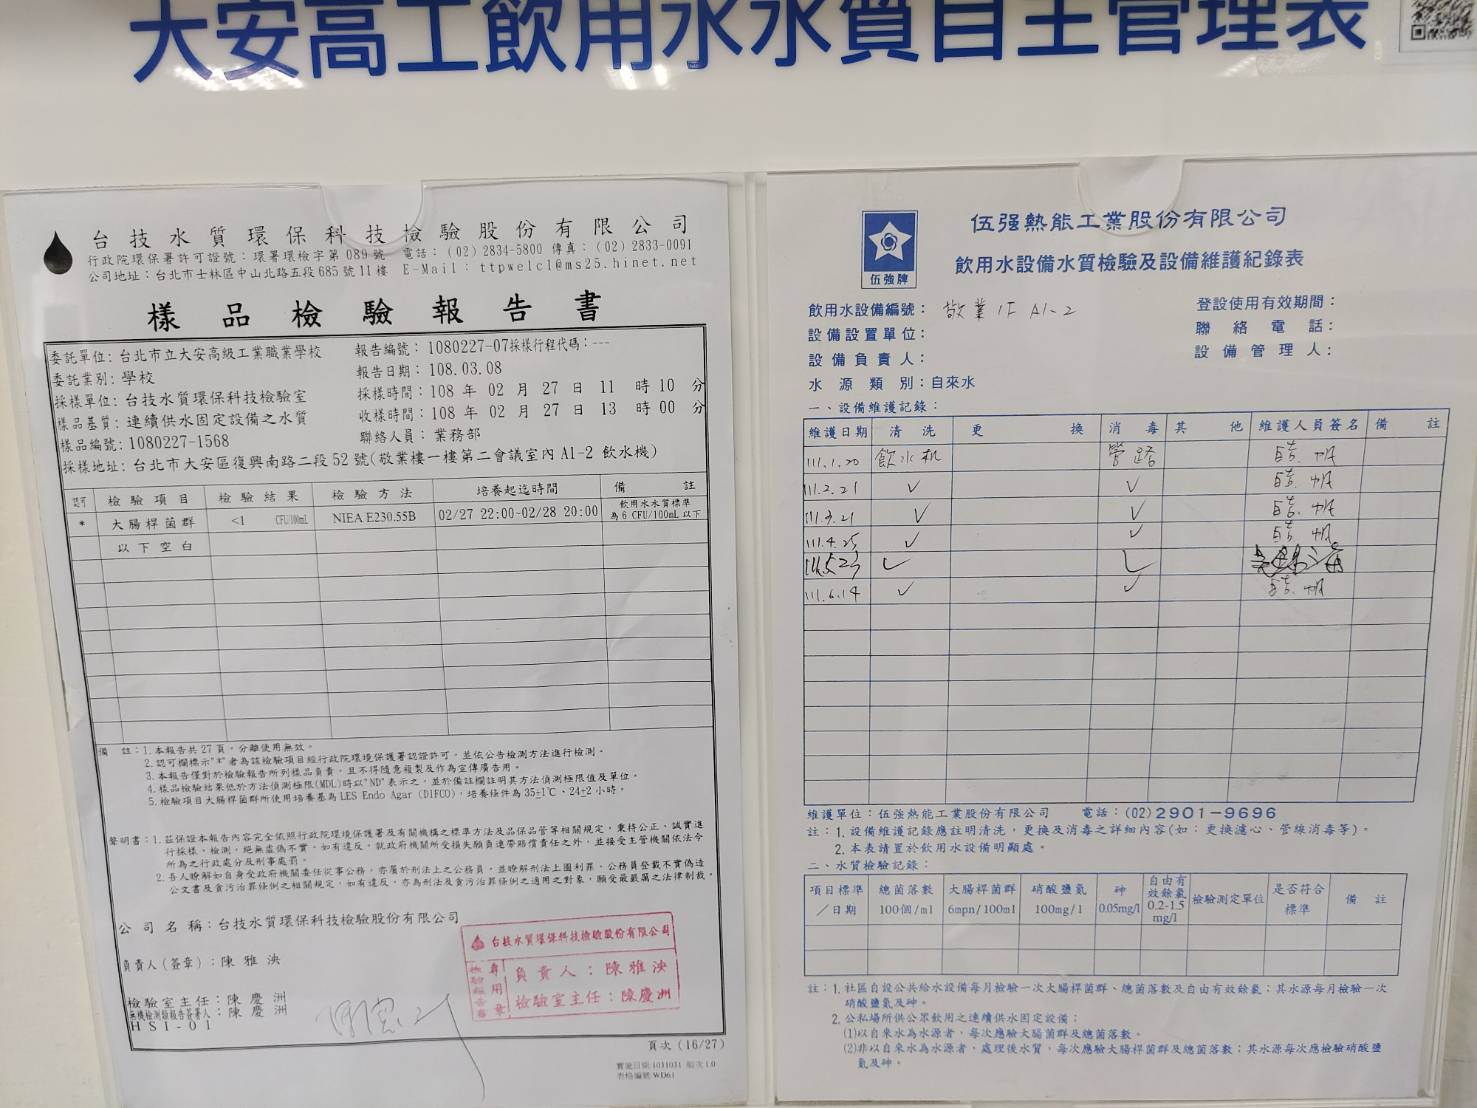 大安高工飲用水水質自主管理表
台技水質環保科技檢驗股份有限公司
行政院環保署許可證號：環署環檢字第089號 電話：(02)2834-5800 傳真：(02)2833-0091
公司地址：台北市士林區中山北路五段685號11樓 E-Mail：ttpwelcl@ms25.hinet.net
樣品檢驗報告書
委託單位：台北市立大安高級工業職業學校 報告編號：1080227-07採樣行程代碼：---
委託業別：學校 報告日期：108.03.08
採樣單位：台技水質環保科技檢驗室 採樣時間：108 年 02 月 27 日 11 時 10 分
樣品基質：連續供水固定設備之水質 收樣時間：108 年 02 月 27 日 13 時 00 分
樣品編號：1080227-1568 聯絡人員：業務部
採樣地址：台北市大安區復興南路二段52號(敬業樓一樓第二會議室內A1-2 飲水機)
認可 檢驗項目 檢驗結果 檢驗方法 培養起迄時間 備註
* 大腸桿菌群 <1 CFU/100mL NIEA E230.55B 02/27 22:00-02/28 20:00 飲用水水質標準
為6 CFU/100mL以下
以下空白
備 註：1.本報告共27頁，分離使用無效。
2.認可欄標示"*"者為該檢驗項目經行政院環境保護署認證許可，並依公告檢測方法進行檢測。
3.本報告僅對於檢驗報告所列樣品負責，且不得隨意複製及作為宣傳廣告用。
4.樣品檢驗結果低於方法偵測極限(MDL)時以"ND"表示之，並於備註欄註明其方法偵測極限值及單位。
5.檢驗項目大腸桿菌群所使用培養基為LES Endo Agar (DIFCO)，培養條件為35±1℃、24±2小時。
聲明書：1.茲保證本報告內容完全依照行政院環境保護署及有關機構之標準方法及品保品管等相關規定，秉持公正、誠實進
行採樣、檢測，絕無虛偽不實，如有違反，就政府機關所受損失願負連帶賠償責任之外，並接受主管機關依法令
所為之行政處分及刑事處罰。
2.吾人瞭解如自身受政府機關委任從事公務，亦屬於刑法上之公務員，並瞭解刑法上圖利罪、公務員登載不實偽造
公文書及貪污治罪條例之相關規定，如有違反，亦為刑法及貪污治罪條例之適用之對象，願受最嚴厲之法律制裁。
公司名稱：台技水質環保科技檢驗股份有限公司
負責人(簽章)：陳雅泱
檢驗室主任：陳慶洲
無機檢測類報告簽署人：陳慶洲
HSI-01
台技水質環保科技檢驗股份有限公司
檢驗報告專用章
負責人：陳雅泱
檢驗室主任：陳慶洲
頁次 (16/27)
實施日期:1031031 版次1.0
表格編號:WD61
伍強牌
伍强熱能工業股份有限公司
飲用水設備水質檢驗及設備維護紀錄表
飲用水設備編號：敬業1F A1-2 登設使用有效期間：
設備設置單位： 聯絡電話：
設備負責人： 設備管理人：
水源類別：自來水
一、設備維護記錄：
維護日期 清洗 更換 消毒 其他 維護人員簽名 備註
111.1.20 飲水机 管路
111.2.21 ✓ ✓
111.3.21 ✓ ✓
111.4.25 ✓ ✓
111.5.23 ✓ ✓
111.6.14 ✓ ✓
維護單位：伍強熱能工業股份有限公司 電話：(02)2901-9696
註：1.設備維護記錄應註明清洗，更換及消毒之詳細內容(如：更換濾心、管線消毒等)。
2.本表請置於飲用水設備明顯處。
二、水質檢驗記錄：
項目標準／日期 總菌落數 100個/ml 大腸桿菌群 6mpn/100ml 硝酸鹽氮 100mg/l 砷 0.05mg/l 自由有效餘氯 0.2-1.5 mg/l 檢驗測定單位 是否符合標準 備註
註：1.社區自設公共給水設備每月檢驗一次大腸桿菌群、總菌落數及自由有效餘氯；其水源每月檢驗一次
硝酸鹽氮及砷。
2.公私場所供公眾飲用之連續供水固定設備：
(1)以自來水為水源者，每次應驗大腸菌群及總菌落數。
(2)非以自來水為水源者，處理後水質，每次應驗大腸桿菌群及總菌落數；其水源每次應檢驗硝酸鹽
氮及砷。